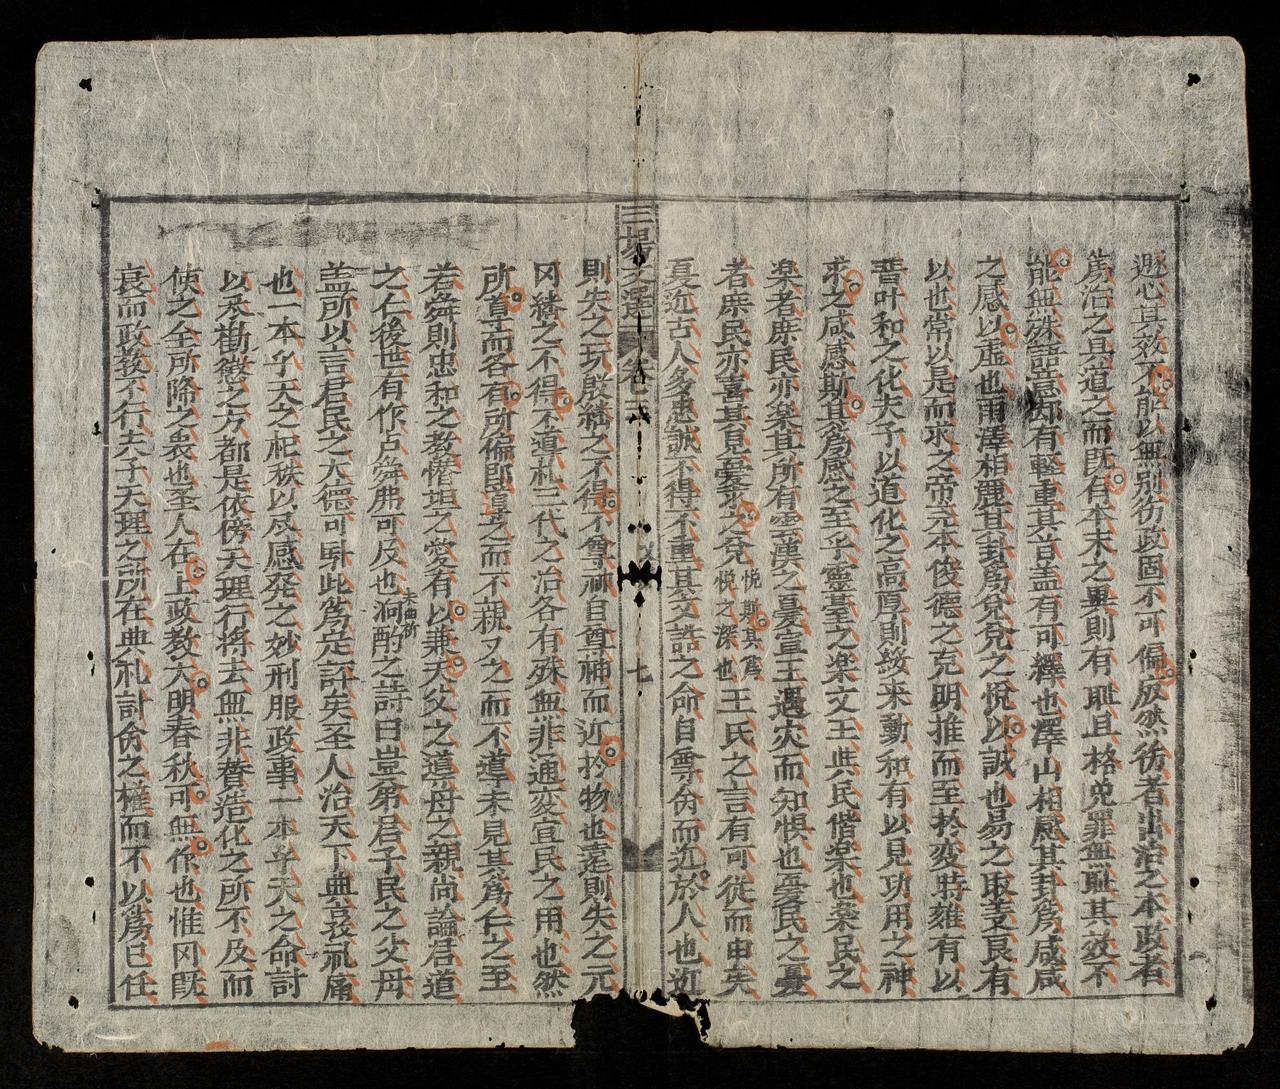 避心其效不能以無別彷政固不可偏廢然彷者出治之本政者
爲治之具道之而既有本末之異則有耻且格免罪無耻其效不
能無殊語默愿却有輕重其旨盖有可繹也澤山相感其卦爲咸咸
之感以虛也雨澤相麗其卦爲兌兌之悅以誠也易之取支良有
以也常以是而求之帝堯本俊德之克明推而至於变時雍有以
晋叶和之化夫子以道化之高厚則綏来動和有以見功用之神
求之咸感斯其爲感之至乎靈臺之楽文王與民偕楽也楽民之
楽者庶民亦楽其所有雲漢之憂宣王遇灾而知惧也憂民之憂
者庶民亦喜其見憂求之兌悅斯其爲悅之深也王氏之言有可從而申矣
夏近古人多忠誠不得不重其文誥之命自尊命而近於人也近
則失之玩殷縟之不得不尊神自尊神而近於物也遠則失之元
冈縟之不得不遵札三代之治各有殊無非通变宜民之用也然
所尊而各有所偏郎尊之而不親又之而不尊未見其爲仁之至
若舜則忠和之教憯坦之愛有以兼天父之道母之親尚論君道
之仁後世有作占舜弗可及也泂酌之詩曰豈弟君子民之父母
盖所以言君民之大德可卽此爲定評矣圣人治天下典哀礼庸
也一本乎天之杞秩以成感発之妙刑服政事一本乎天之命討
以承勸懲之方都是依傍天理行将去無非賛造化之所不及而
使之全所降之衷也圣人在上政教大明春秋可無作也惟冈既
衰而政教不行夫子天理之所在典礼討命之權而不以爲已任
三場文選 卷二 七